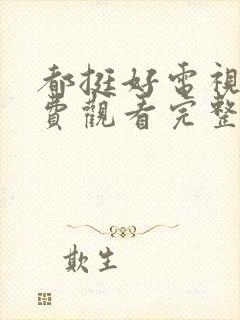 都挺好電視
費觀看完整
欺生